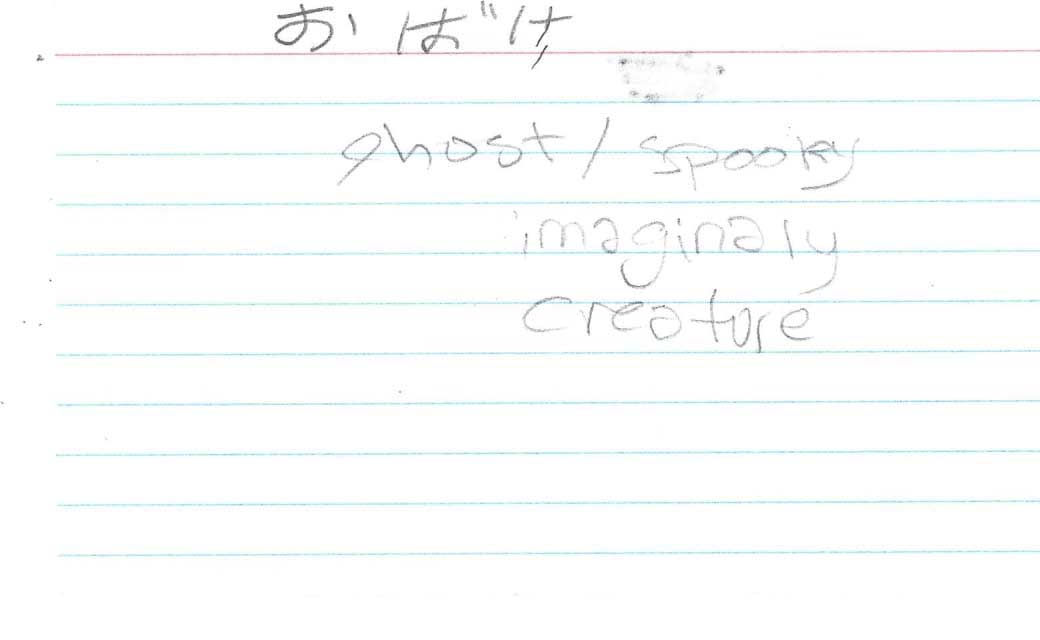 おばけ
ghost / spooky
imaginaly
creature